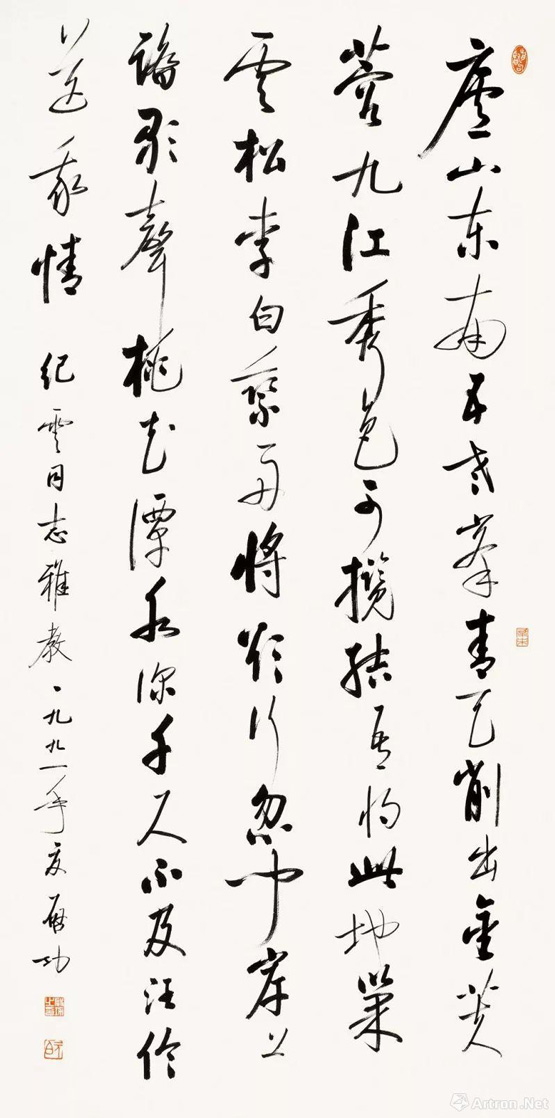 廬山东南五老峯青天削出金芙
蓉九江秀色可攬結吾將此地巢
雲松李白乘舟將欲行忽聞岸上
踏歌聲桃花潭水深千尺不及汪倫
送我情 紀雲同志雅教 一九九一年夏 啟功
Artron.Net